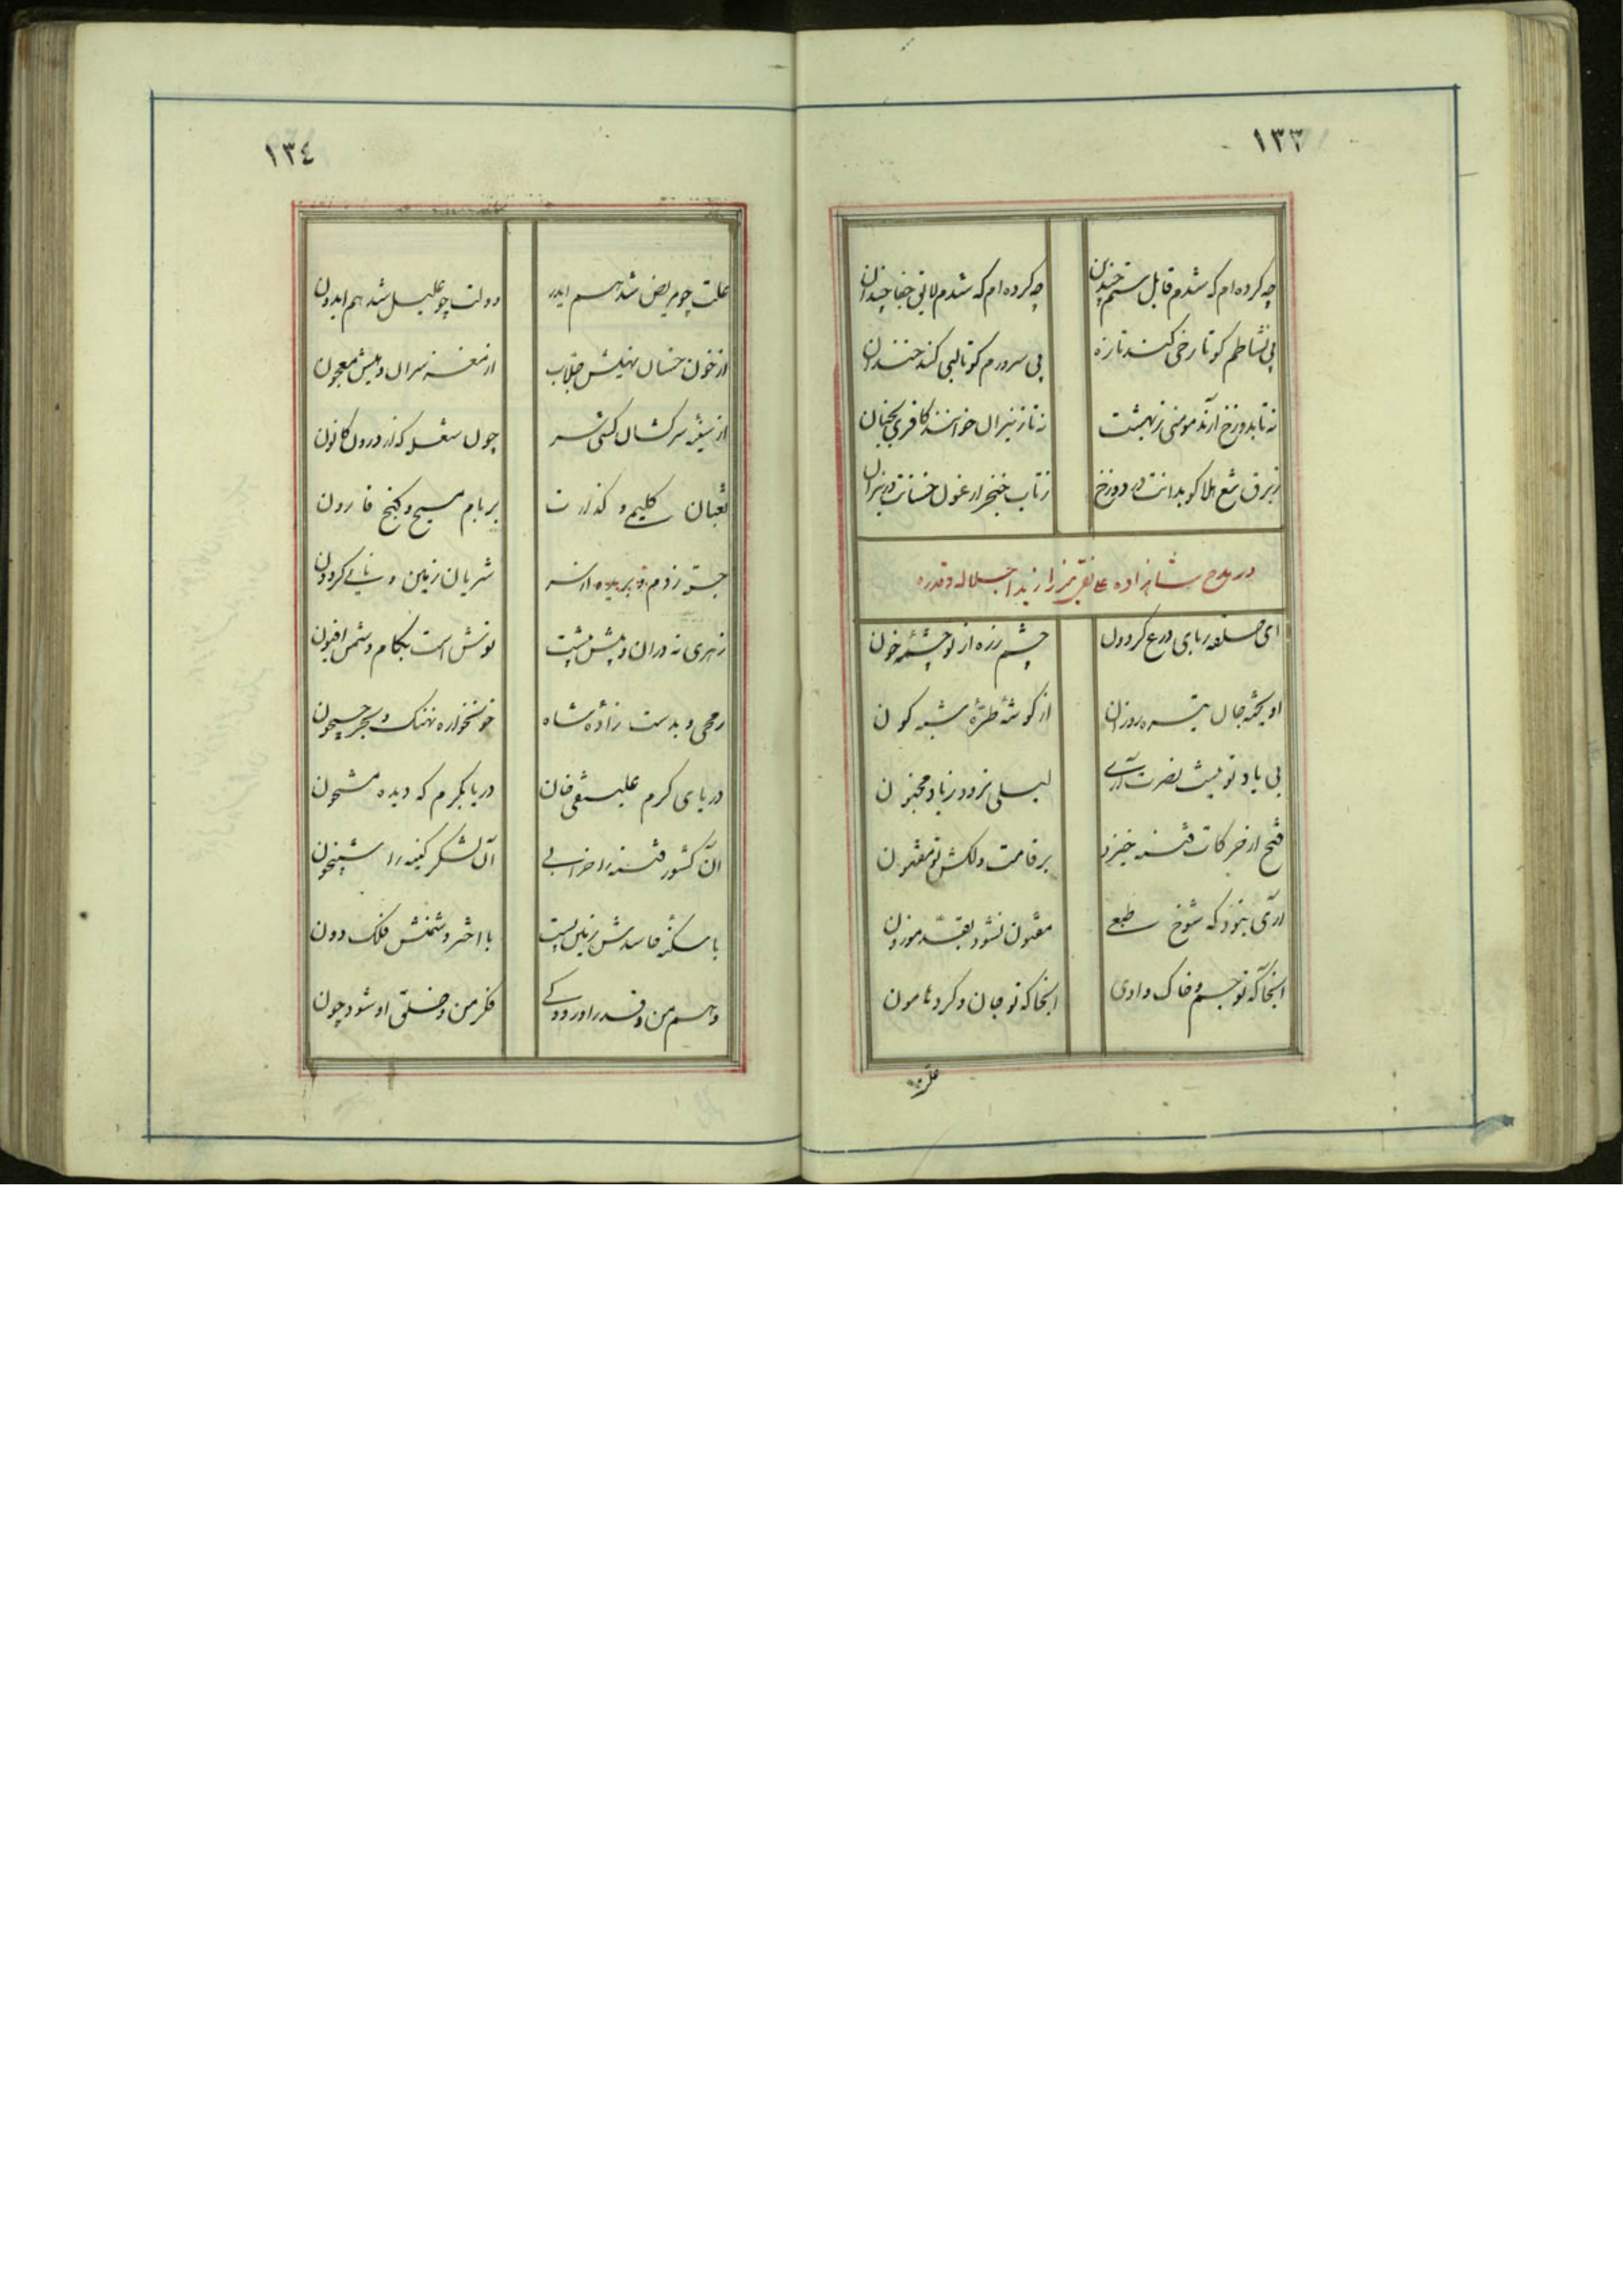 ١٣٣
چه کرده ام که شدم قابل ستم چندین
چه کرده ام که شدم لایق جفا چندان
پی نشاطم کو تا رخی کند تازه
پی سرورم کو تا لبی کند خندان
نه تا بدوزخ آرند مومنی ز بهشت
نه تا ز نیران خوانند کافری بجنان
ز برق تیغ هلاکو بداندت در دوزخ
ز تاب خنجر ارغون در نیران
در مدح شاهزاده علینقی میرزا زید اجلاله و قدره
ای حلقه ربای درع گردون
چشم زره از تو چشمهٔ خون
آویخته جان تیره روزان
از گوشهٔ طرهٔ شبه گون
بی یاد تو نیست نصرت آری
لیلی نرود ز یاد مجنون
فتح از حرکات فتنه خیزت
بر قامت دلکش تو مفتون
آری نبود که شوخ طبعی
مفتون نشود بقد موزون
آنجا که تو جسم و خاک وادی
آنجا که تو جان و گرد هامون
علت
١٣٤
علت چو مریض شد هم ایدر
دولت چو علیل شد هم ایدون
از خون خسان نهیلش جلاب
از مغز سران دهیش معجون
از سر کشان کشی سر
چون شعله که از درون کانون
ثعبان کلیمی و گذارت
بر بام مسیح و گنج قارون
جستی ز دم تو بریده از سر
شریان زمین و نای گردون
زهری نه در آن و پیش پشت
نوش است بکام دشمن افیون
رمحی و بدست زادهٔ شاه
خونخواره نهنگ و بحر جیحون
دریای کرم علینقی خان
دریا بکرم که دیده مشحون
آن کشور فتنه را خرابی
آن لشکر کینه را شبیخون
با مسکنه حاسدش زمین پست
با اختر دشمنش فلک دون
وهم من و قدر او رود کی
فکر من و خلق او شود چون